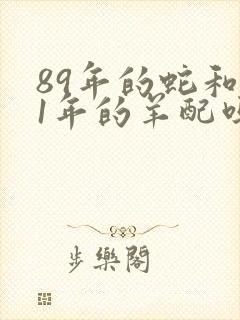 89年的蛇和
1年的羊配
步樂閣